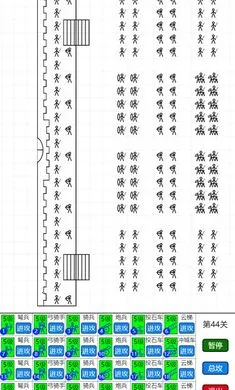 第44关
5级 弩兵 5级 弓骑手 5级 骑兵 5级 炮兵 5级 投石车 5级 云梯
1 进攻 2 进攻 3 进攻 4 进攻 5 进攻 进攻
暂停
5级 弩兵 5级 弓骑手 5级 骑兵 5级 炮兵 5级 投石车 5级 冲城车
7 进攻 进攻 进攻 进攻 进攻 进攻
总攻
5级 弩兵 5级 弓骑手 5级 骑兵 5级 炮兵 5级 投石车 5级 云梯
进攻 进攻 进攻 进攻 进攻 进攻
5级 弩兵 5级 弓骑手 5级 骑兵 5级 炮兵 5级 投石车 5级 云梯